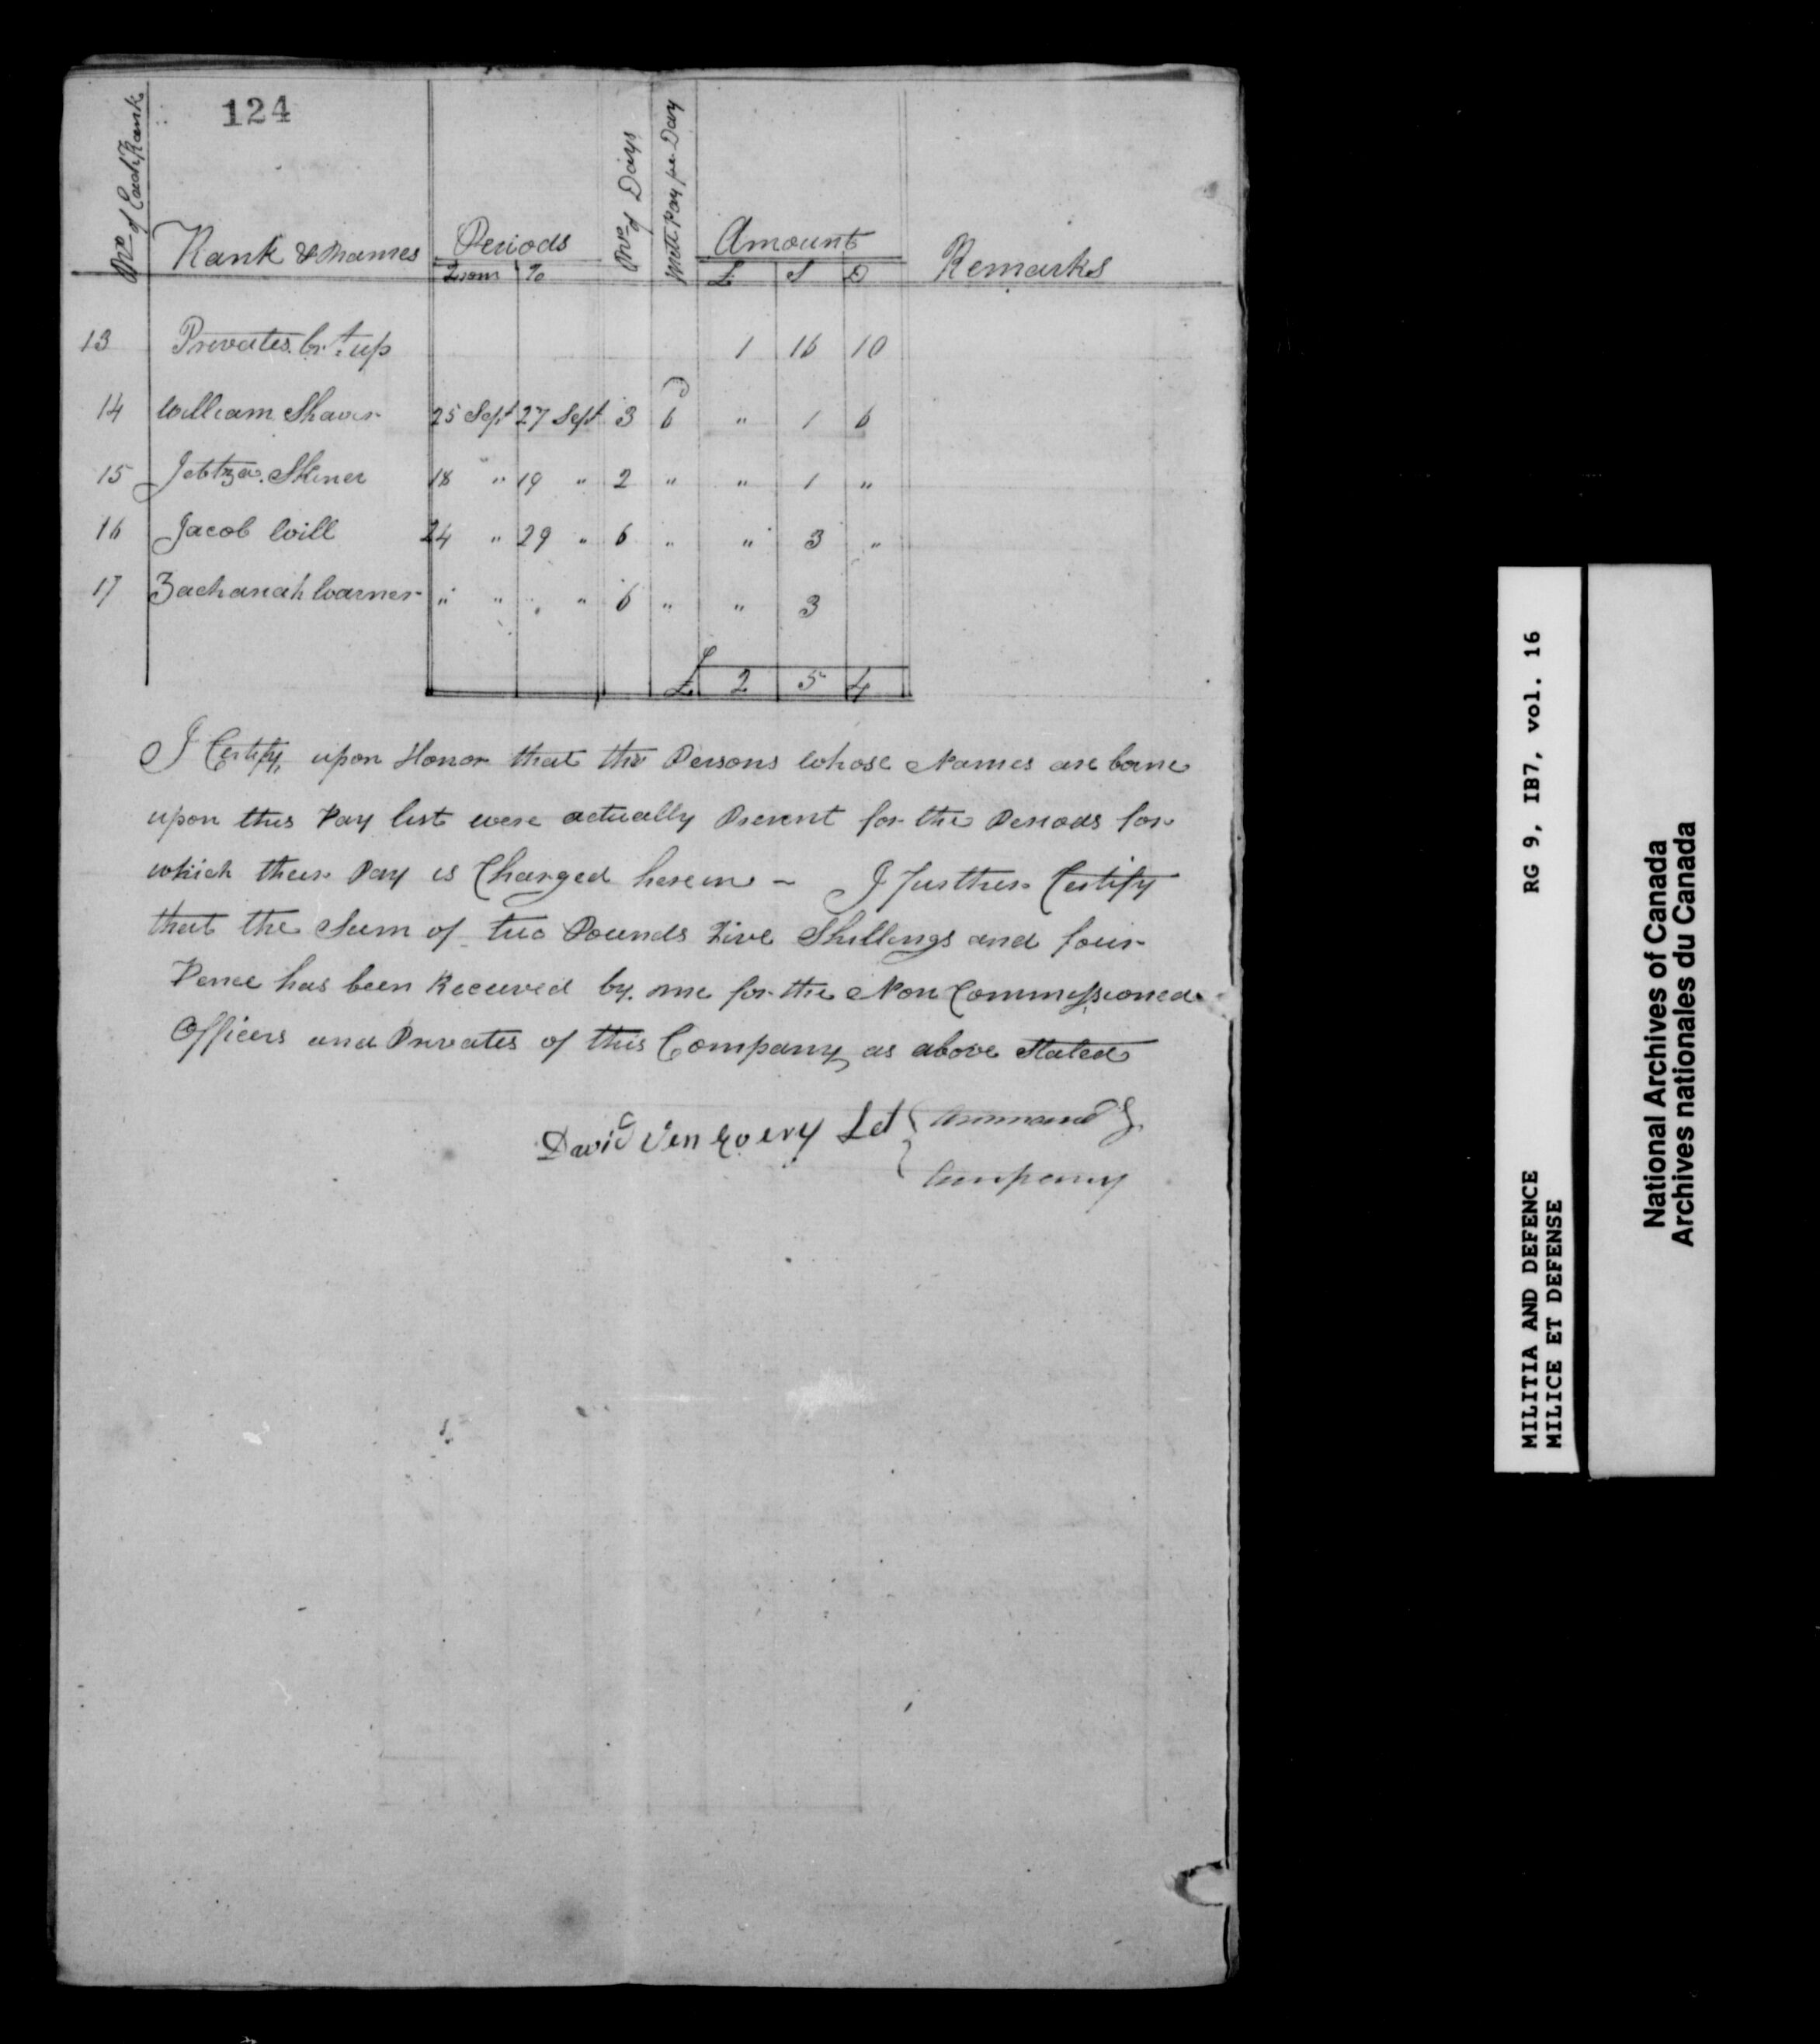 124
No. of Each Rank | Rank & Names | Periods From To | No. of Days | Pay per Day | Amount £ S D | Remarks
13 Privates br.t up 1 16 10
14 William Shaver 25 Sept 27 Sept 3 6d " 1 6
15 Skiner 18 " 19 " 2 " " 1 "
16 Jacob Will 24 " 29 " 6 " " 3 "
17 Zachariah Warner " " " " 6 " " 3
£ 2 5 4
I Certify upon Honor that the Persons whose Names are borne
upon this Pay list were actually Present for the Periods for
which their Pay is Charged herein – I further Certify
that the Sum of two Pounds Five Shillings and four
Pence has been Received by me for the Non Commissioned
Officers and Privates of this Company as above Stated
David Lt Command.g
Company
MILITIA AND DEFENCE RG 9, IB7, vol. 16
MILICE ET DEFENSE
National Archives of Canada
Archives nationales du Canada